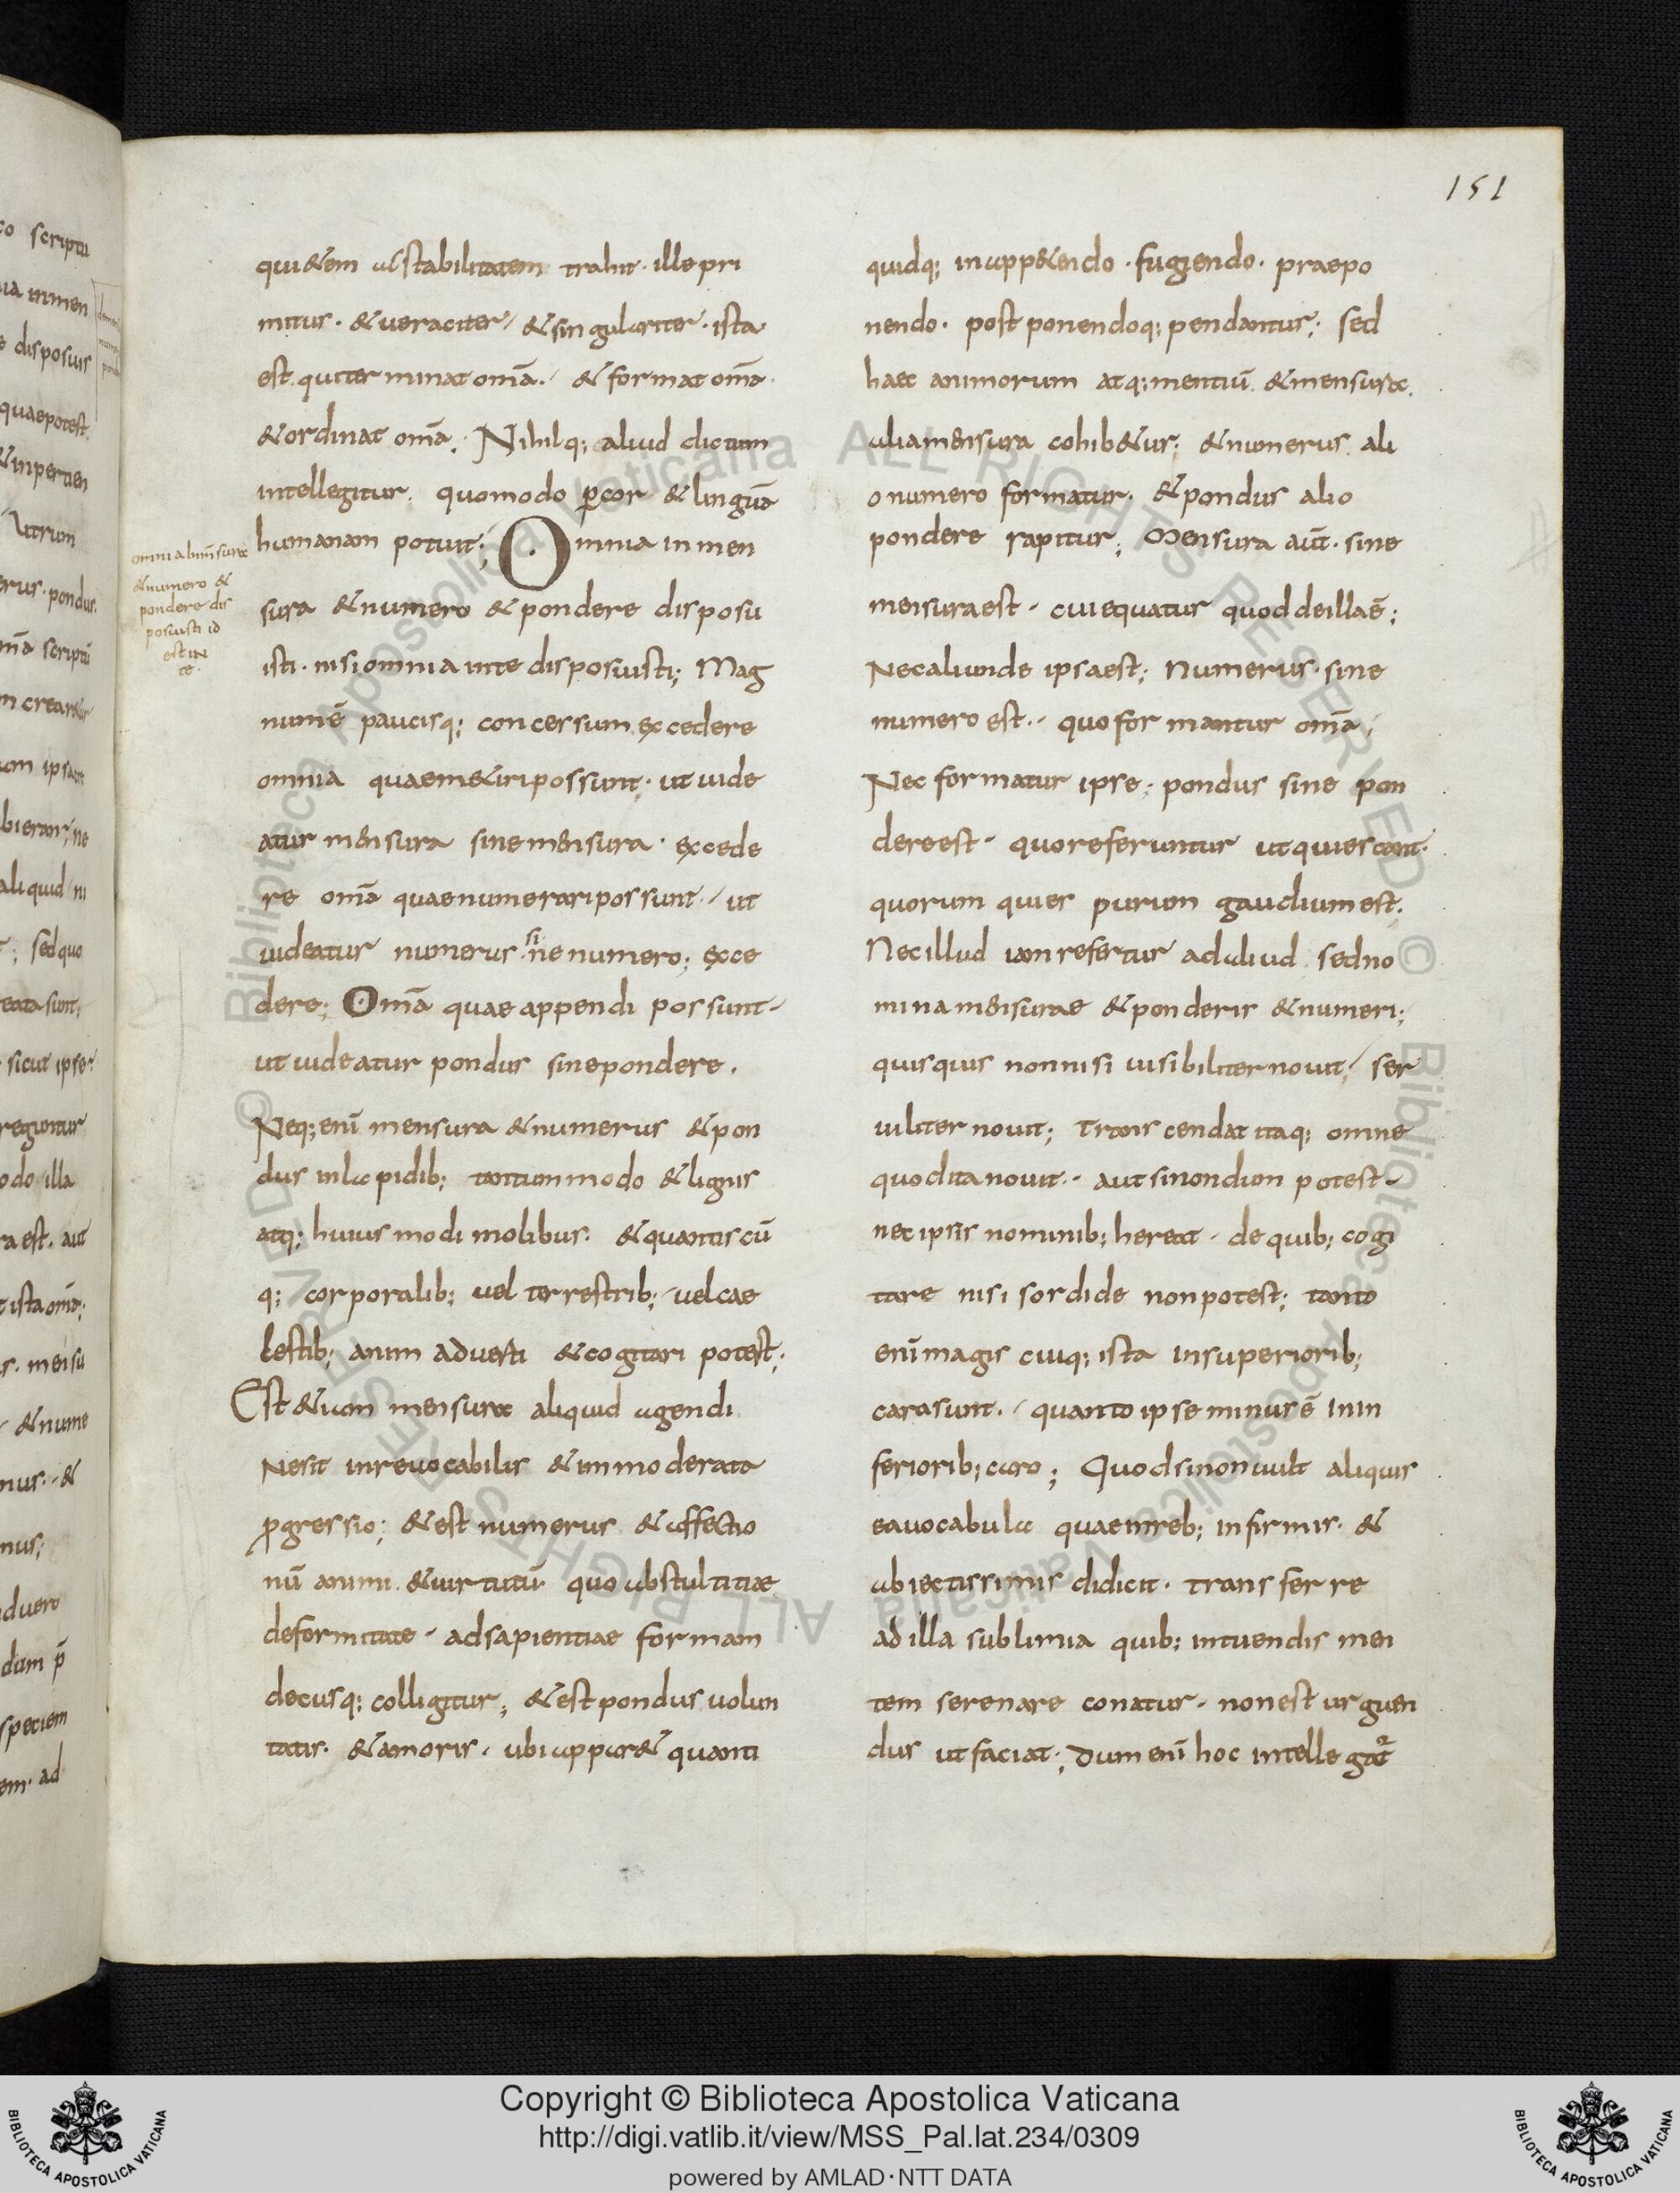 151
qui&em ac stabilitatem trahit · ille pri
mitus · & ueraciter & singulariter · ista
est. qui terminat om̄a. & format om̄a
& ordinat om̄a. Nihilq; aliud dictum
intellegitur. quomodo p̱ cor & linguā
humanam potuit; Omnia in men
sura & numero & pondere disposu
isti · nisi omnia inte disposuisti; Mag
num ē paucisq; concessum excedere
omnia quaem&iri possunt; ut uide
atur mensura sine mensura · excede
re om̄a quaenumerari possunt · ut
uideatur numerus sine numero; exce
dere; Om̄a quae appendi possunt
ut uideatur pondus sine pondere.
Neq; enī mensura & numerus & pon
dus inlapidib; tantummodo & lignis
atq; huius modi molibus. & quantis cū
q; corporalib; uel terrestrib; uel cae
lestib; anim aduerti & cogitari potest;
Est &iam mensurae aliquid agendi
Nesit inreuocabilis & immoderata
ꝓgressio; & est numerus & affectio
nū animi. & uirtutū quo abstultitiae
deformitate · adsapientiae formam
decusq; colligitur; & est pondus uolun
tatis. & amoris. ubi appar& quanti
omnia in mensura
& numero &
pondere dis
posuisti id
est IN
te.
quidq; in app&endo · fugiendo · praepo
nendo · post ponendoq; pendantur; sed
haec animorum atq; mentiū. & mensurae.
alia mensura cohib&ur; & numerus ali
o numero formatur. & pondus alio
pondere rapitur; Mensura aūt · sine
mensura est · cui equatur quod de illa ē;
Nec aliunde ipsa est; Numerus · sine
numero est. quo formantur om̄a
Nec formatur ipse; pondus sine pon
dere est · quo referuntur ut quiescant ·
quorum quies purum gaudium est.
Nec illud iam refertur ad aliud sed no
mina mensurae & ponderis & numeri;
quisquis nonnisi uisibiliter nouit, ser
uiliter nouit; Trans cendat itaq; omne
quod ita nouit · aut si nondum potest
nec ipsis nominib; hereat · de quib; cogi
tare nisi sordide non potest; tanto
enī magis cuiq; ista insuperiorib;
cara sunt. quanto ipse minus ē in in
feriorib; caro; Quod si non uult aliquis
ea uocabula quae inreb; infirmis. &
abiectissimis didicit. trans fer re
ad illa sublimia quib; intuendis men
tem serenare conatur · non est urguen
dus ut faciat; Dum enī hoc intellegat̄
Copyright © Biblioteca Apostolica Vaticana
http://digi.vatlib.it/view/MSS_Pal.lat.234/0309
powered by AMLAD·NTT DATA
BIBLIOTECA APOSTOLICA VATICANA
BIBLIOTECA APOSTOLICA VATICANA